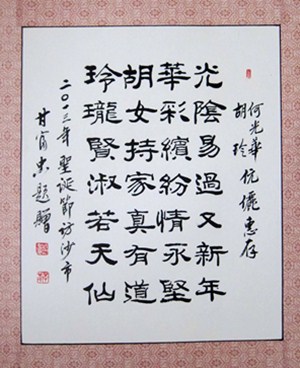 何光華
胡玲 伉儷惠存
光陰易過又新年
華彩繽紛情永堅
胡女持家真有道
玲瓏賢淑若天仙
二〇一三年聖誕節訪沙市
甘宵忠題贈